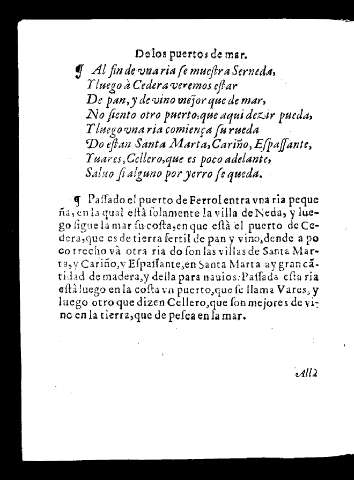 De los puertos de mar.
¶ Al fin de vna ria se muestra Serneda,
Y luego à Cedera veremos estar
De pan, y de vino mejor que de mar,
No siento otro puerto, que aqui dezir pueda,
Y luego vna ria comiença su rueda
Do estan Santa Marta, Cariño, Espassante,
Yuares, Cellero, que es poco adelante,
Saluo si alguno por yerro se queda.
¶ Passado el puerto de Ferrol entra vna ria peque
ña, en la qual està solamente la villa de Neda, y lue-
go sigue la mar su costa, en que està el puerto de Ce-
dera, que es de tierra fertil de pan y vino, dende a po
co trecho và otra ria do son las villas de Santa Mar-
ta, y Cariño, y Espassante, en Santa Marta ay gran cã-
tidad de madera, y della para nauios. Passada esta ria
està luego en la costa vn puerto, que se llama Vares, y
luego otro que dizen Cellero, que son mejores de vi-
no en la tierra, que de pesca en la mar.
Allà